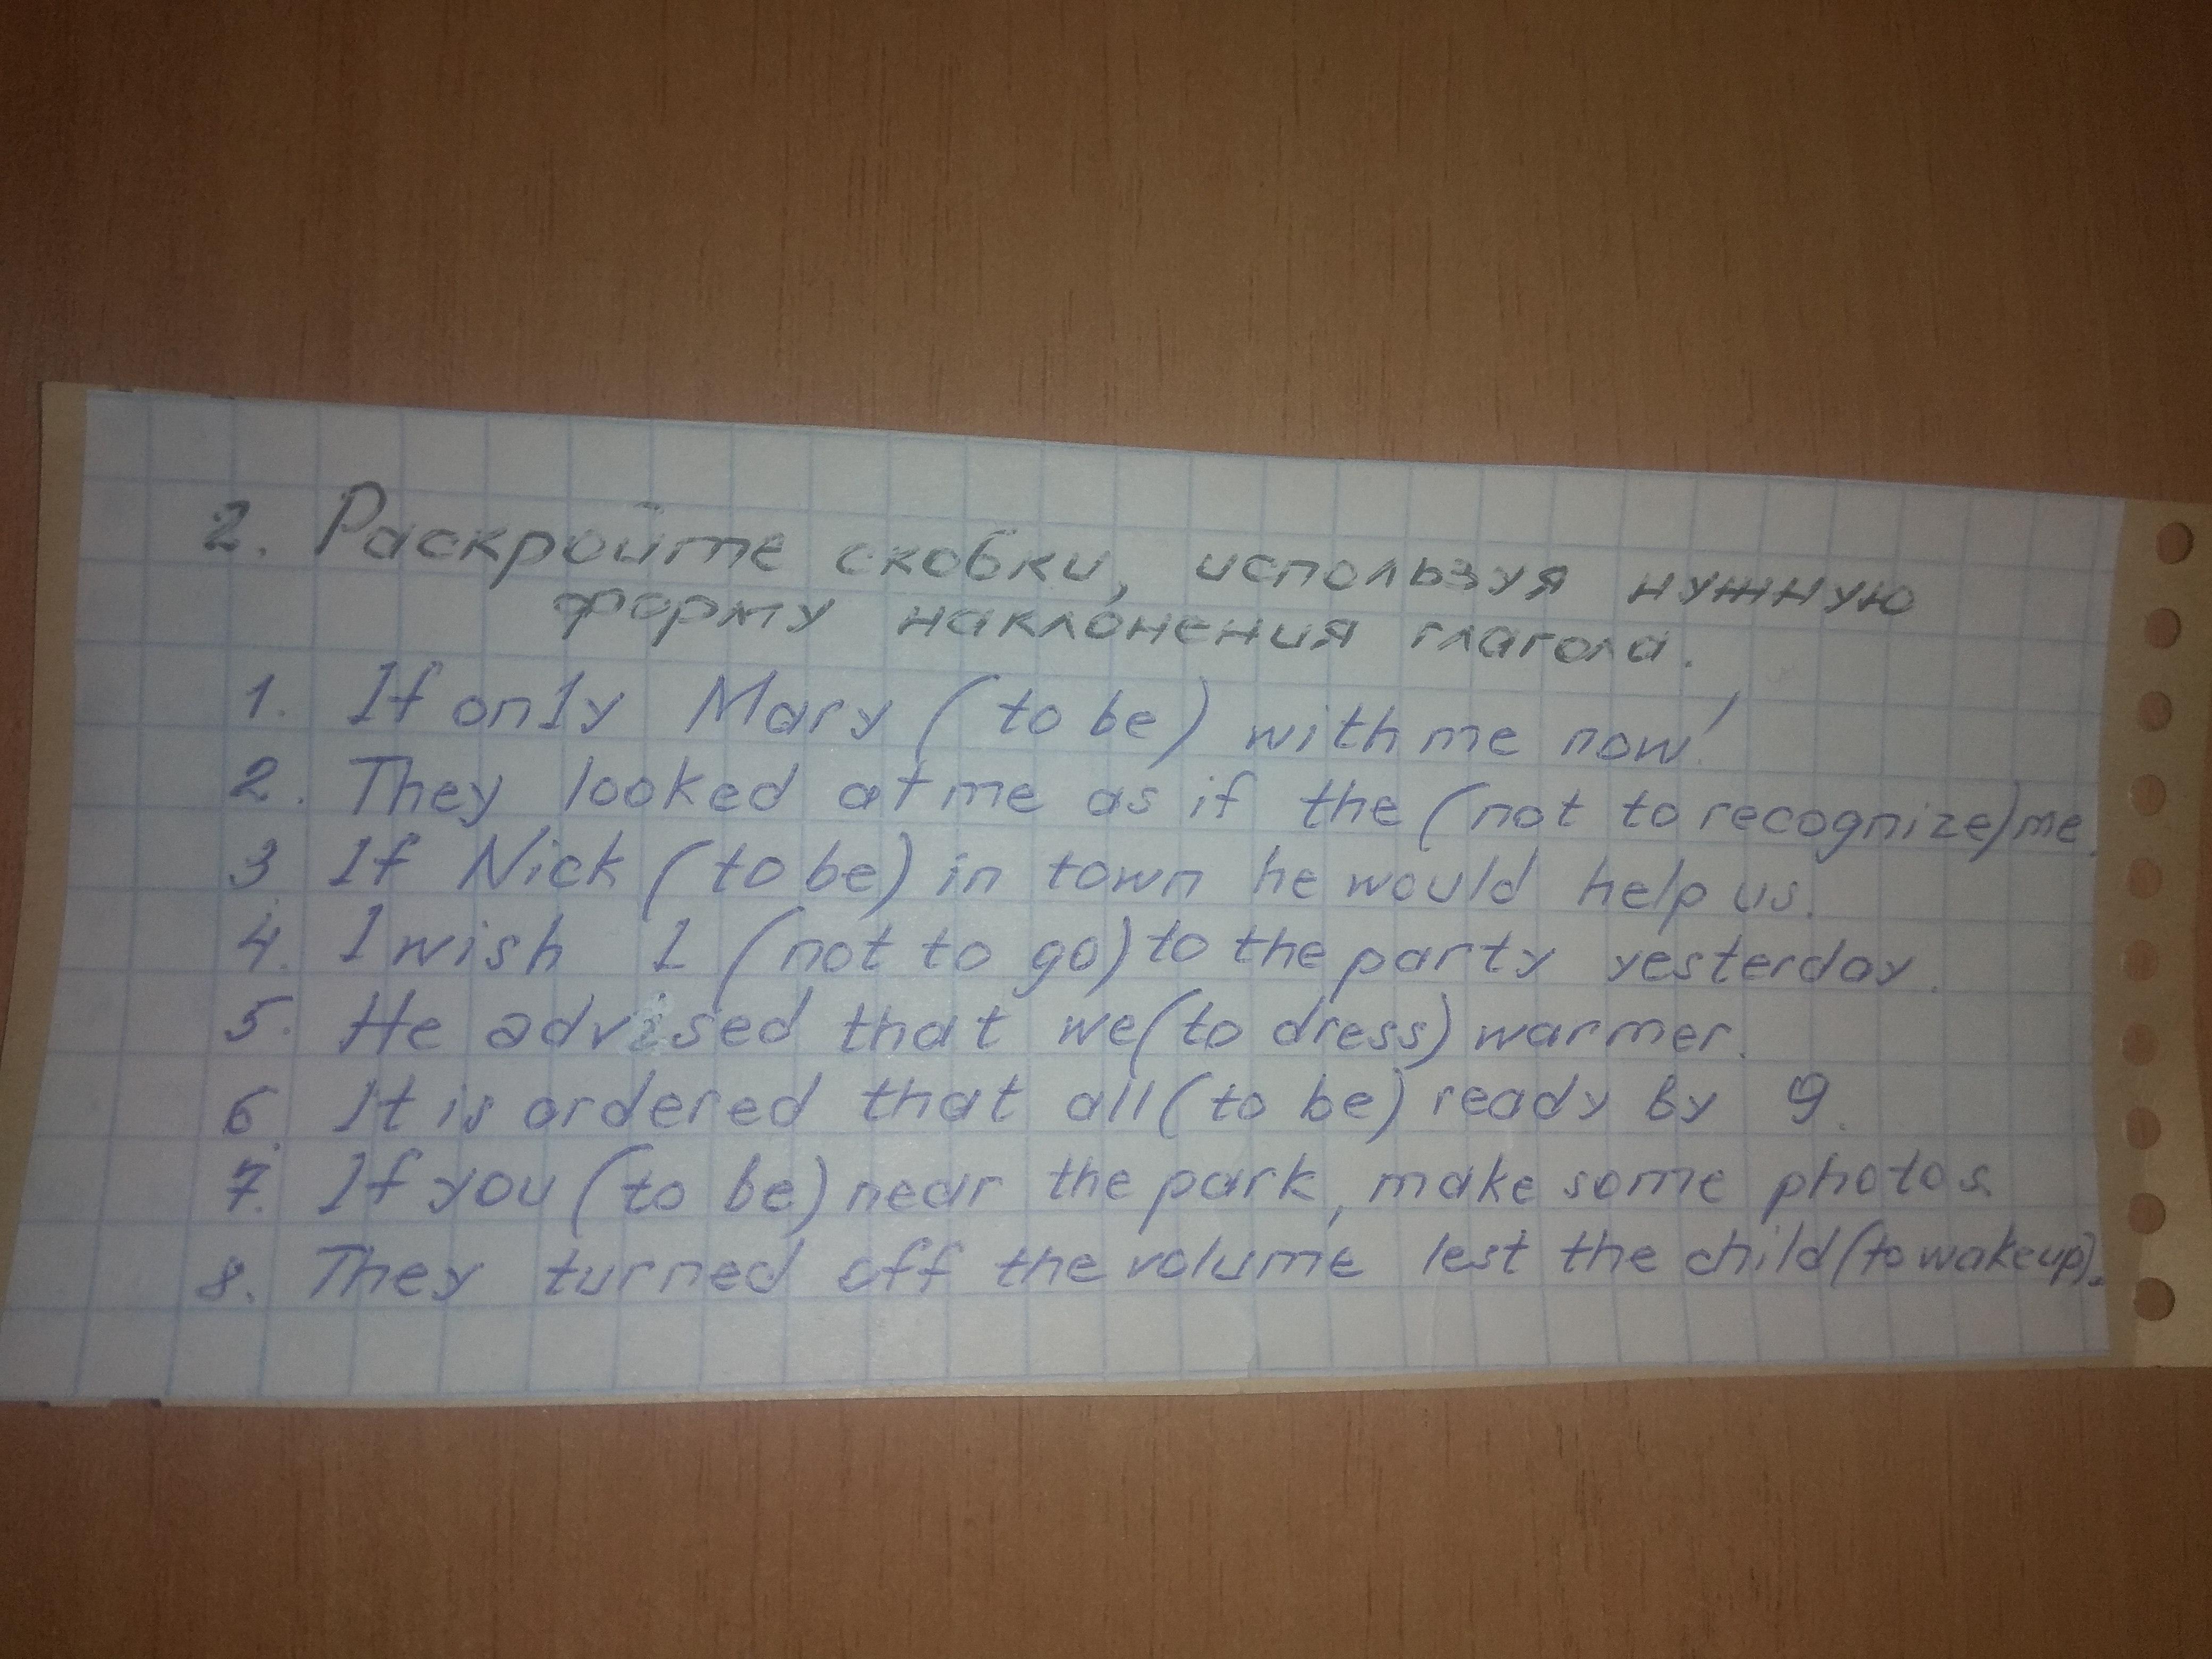 2. Раскройте скобки, используя нужную
форму наклонения глагола.
1. If only Mary (to be) with me now!
2. They looked at me as if the (not to recognize) me.
3 If Nick (to be) in town he would help us.
4. I wish I (not to go) to the party yesterday.
5. He advised that we (to dress) warmer.
6. It is ordered that all (to be) ready by 9.
7. If you (to be) near the park, make some photos.
8. They turned off the volume lest the child (to wake up).